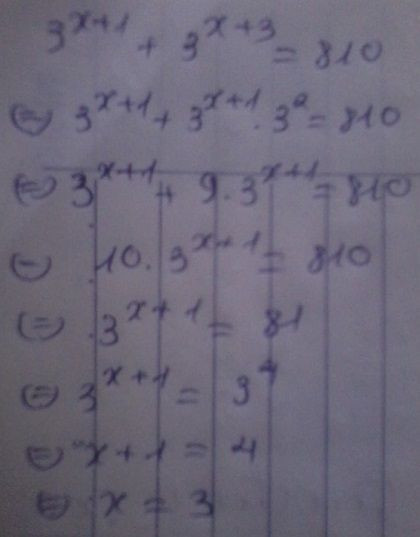 3^{x+1} + 3^{x+3} = 810
⇔ 3^{x+1} + 3^{x+1} . 3^2 = 810
⇔ 3^{x+1} + 9 . 3^{x+1} = 810
⇔ 10 . 3^{x+1} = 810
⇔ 3^{x+1} = 81
⇔ 3^{x+1} = 3^4
⇔ x + 1 = 4
⇔ x = 3